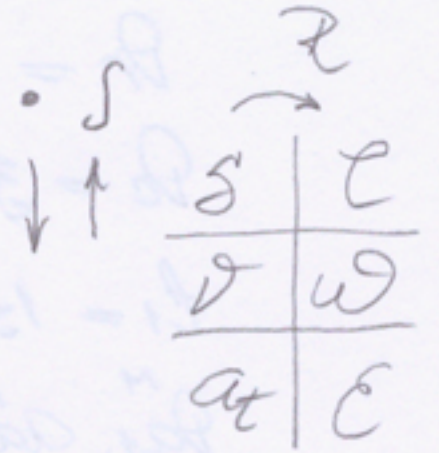 R
· ∫ →
↓ ↑ S
v ω
a_t ε